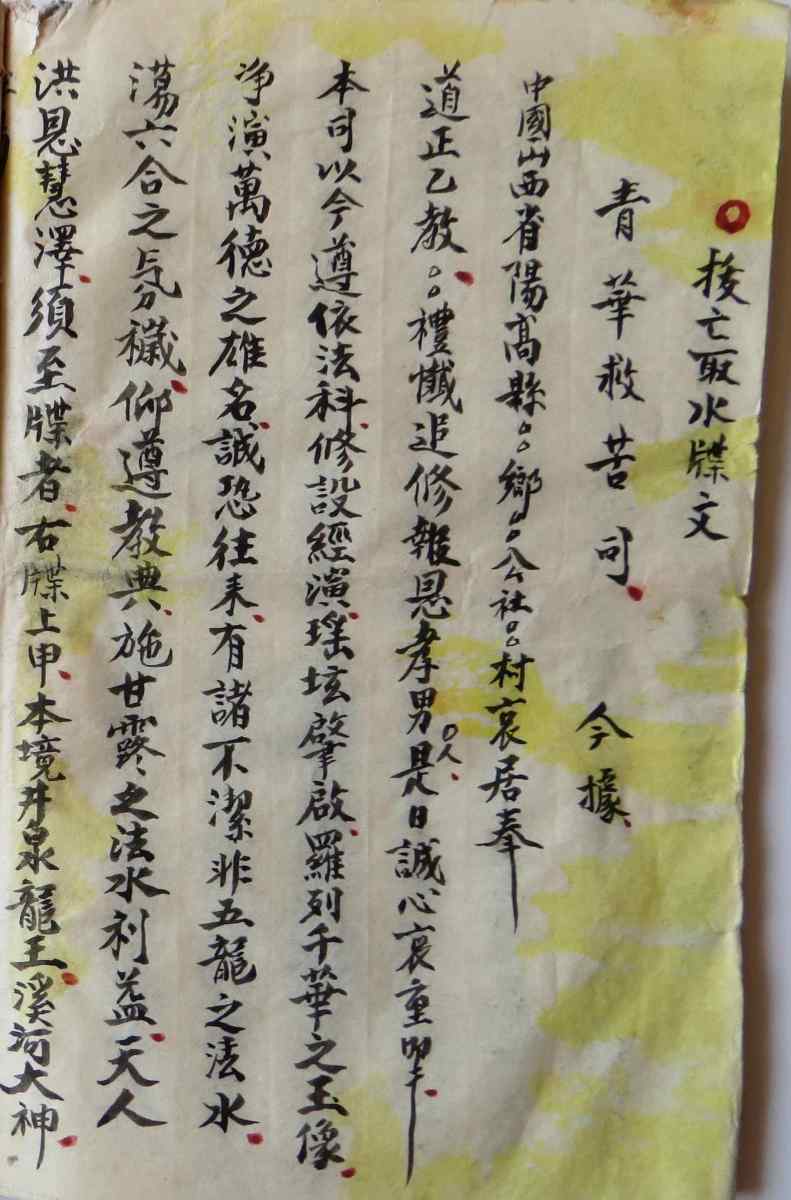 拨亡取水牒文
青華救苦司 今據
中國山西省陽高縣○○鄉○○公社○○村哀居奉
道正乙教○○禮懺追修報恩孝男○人是日誠心哀重叩干
本司以今遵依法科修設經演瑶坛肇啟羅列千華之玉像
净演萬德之雄名誠恐往来有諸不潔非五龍之法水
蕩六合之氛穢仰遵教典施甘露之法水利益天人
洪恩慧澤須至牒者右牒上申本境井泉龍王溪河大神